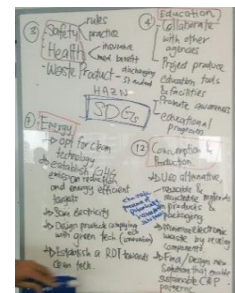 ③ Safety
Health
rules
practice
insurance
med benefit
- Waste Product
discharging
standard
④ Education
- Collaborate
with other
agencies
- Project produce
education tools
& facilities
- Promote awareness
- educational
programs
SDGs
Energy
→ opt for clean
technology
→ Establish GHG
emission reduction
and energy efficient
targets
→ Save electricity
→ Design products complying
with green tech (innovation)
→ Establish a RDT towards
clean tech.
⑫ Consumption &
Production
→ Use alternative,
reusable & recyclable materials
in products &
packaging
→ Minimize electronic
waste by reusing
components
→ Find/Design new
solution that enable
sustainable C&P
patterns